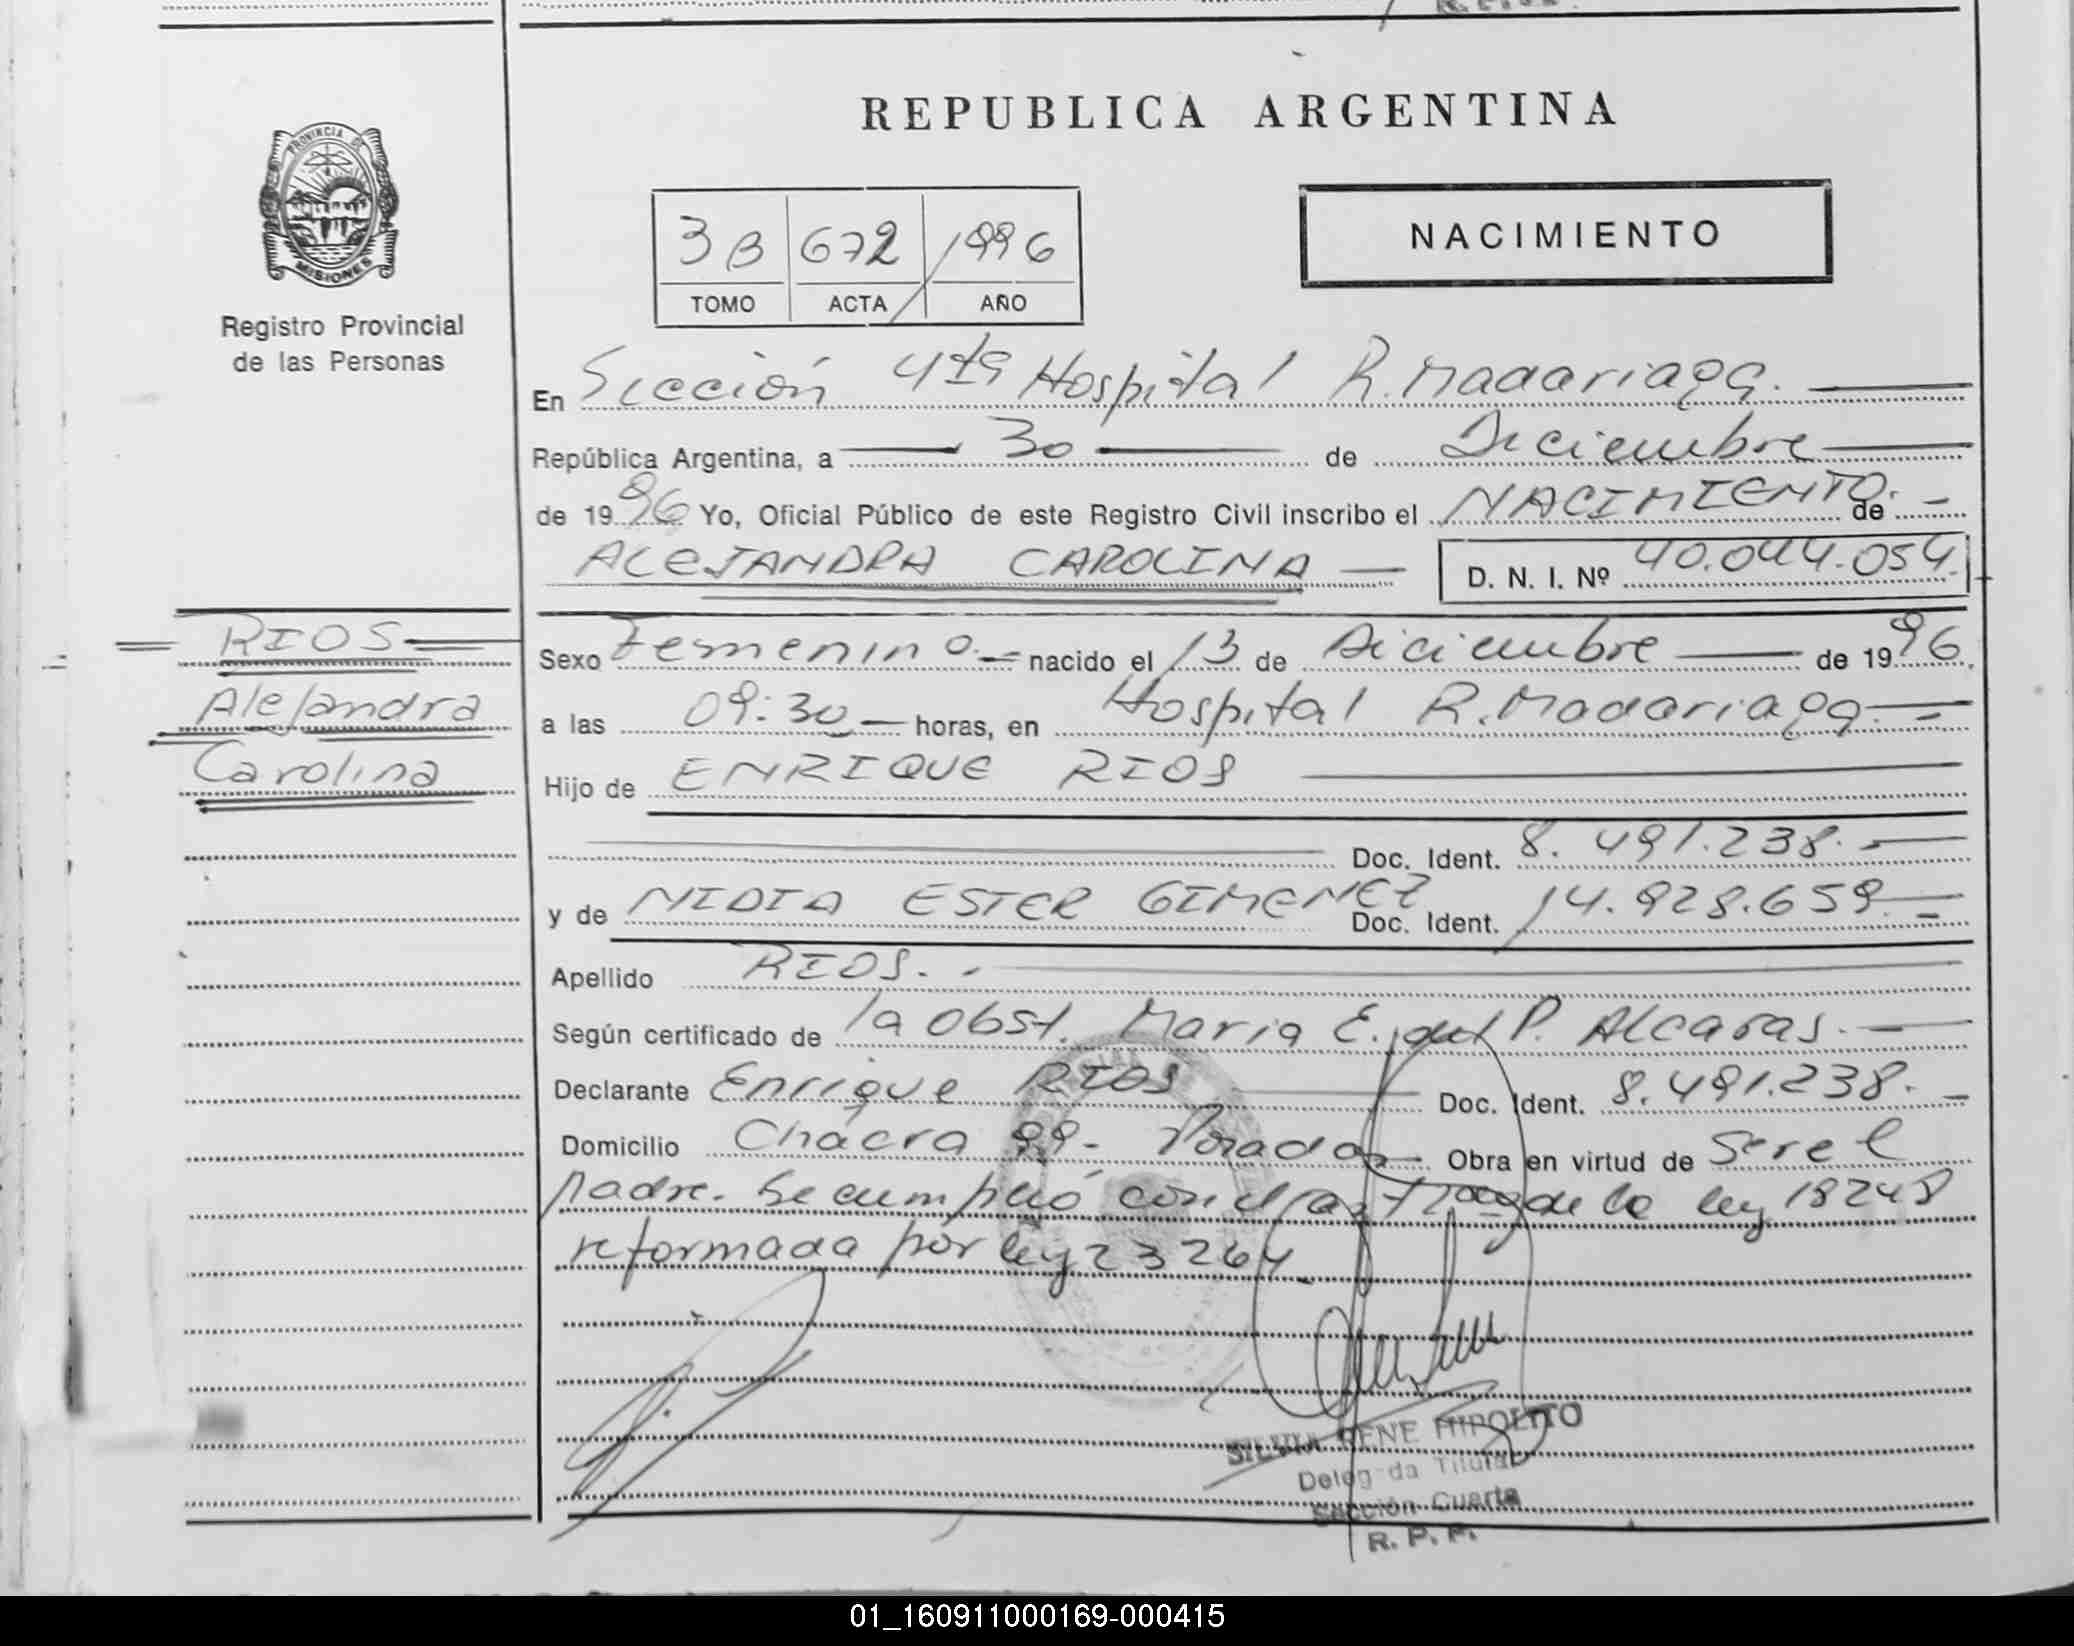 REPUBLICA ARGENTINA
PROVINCIA DE
MISIONES
Registro Provincial
de las Personas
3 B 672 / 1996
TOMO ACTA AÑO
NACIMIENTO
En Sección 4ta Hospital R. Madariaga.
República Argentina, a 30 de Diciembre
de 1996 Yo, Oficial Público de este Registro Civil inscribo el NACIMIENTO. de
ALEJANDRA CAROLINA D. N. I. Nº 40.044.054.
RIOS
Alejandra
Carolina
Sexo Femenino. nacido el 13 de Diciembre de 1996.
a las 09:30 horas, en Hospital R. Madariaga.
Hijo de ENRIQUE RIOS
Doc. Ident. 8.491.238.
y de NIDIA ESTER GIMENEZ Doc. Ident. 14.928.659.
Apellido RIOS.
Según certificado de la obst. Maria E. del P. Alcaras.
Declarante Enrique RIOS Doc. Ident. 8.491.238.
Domicilio Chácra 99- Posadas Obra en virtud de Ser el
Padre. Se cumplió con el de la ley 18248
reformada por ley 23264
SILVIA RENE HIPOLITO
Delegada Titular
Sección Cuarta
R. P. P.
01_160911000169-000415